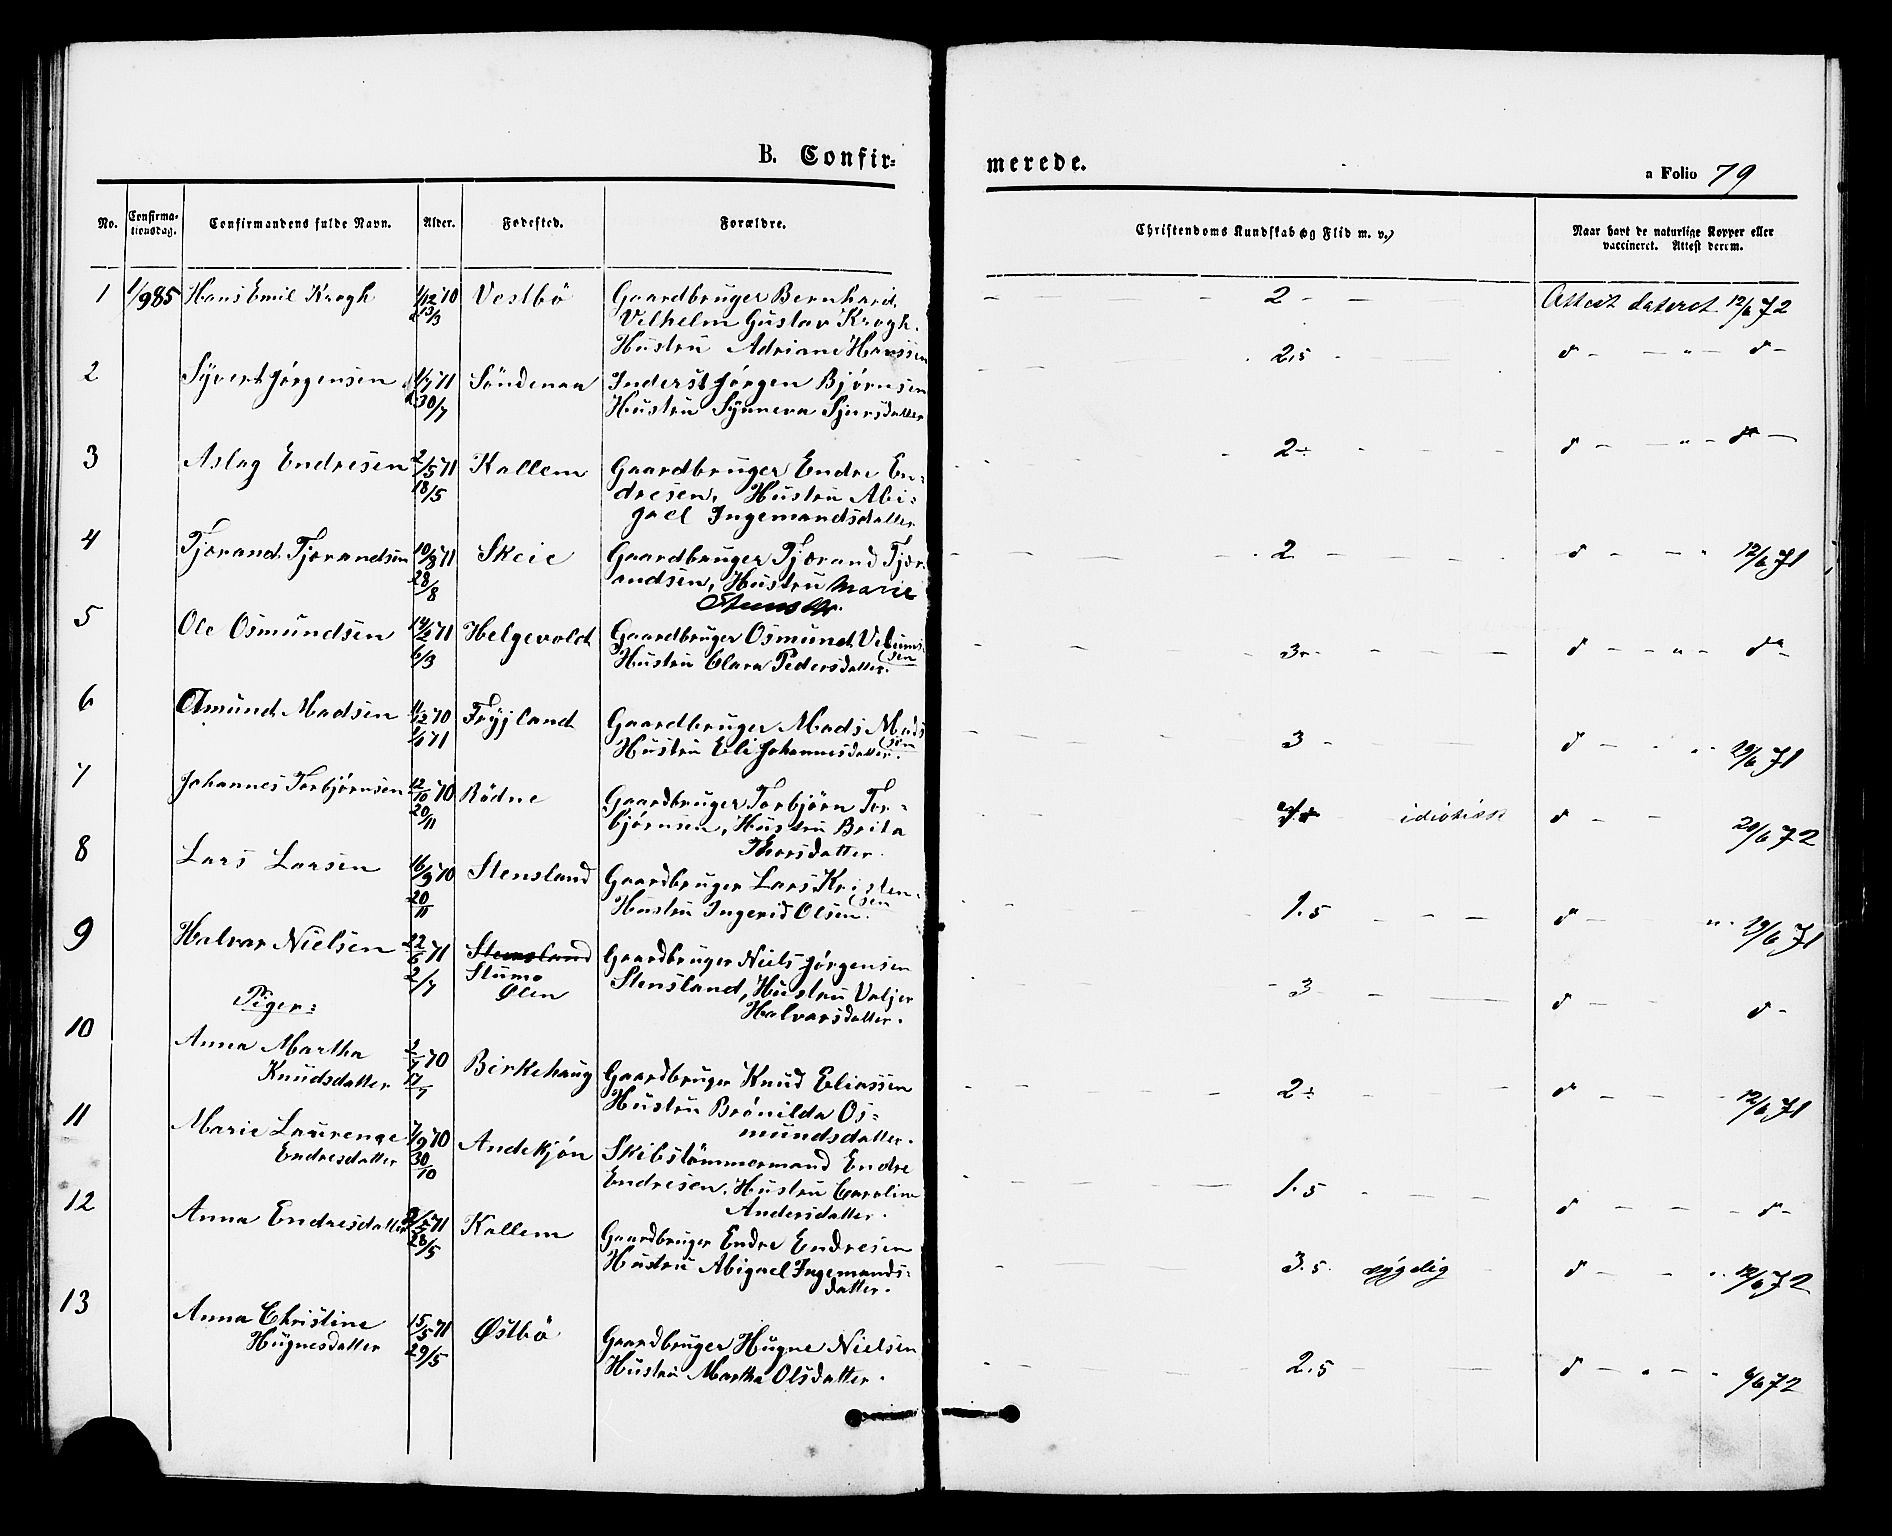 B. Confir=
merede.
a Folio 79
No.
Confirma-
tionsdag.
Confirmandens fulde Navn.
Alder.
Fødested.
Forældre.
Christendoms Kundskab og Flid m. v.
Naar havt de naturlige Kopper eller
vaccineret. Attest derom.
1 1/985 Hans Emil Krogh 1/12 70 Vestbö Gaardbruger Bernhard
13/3 Vilhelm Gustav Krogh.
Hustru Adriane Hanssen
2 Attest dateret 12/6 72
2 Syvert Jørgensen 1/7 71 Söndenaa Inderst Jørgen Bjørnsen
30/7 Hustru Synneva Sjursdatter
2.5 d - " - d -
3 Aslag Endresen 2/5 71 Kallem Gaardbruger Endre En=
18/5 dresen, Hustru Abi=
gael Ingemandsdatter
2÷ d - " - d -
4 Tjørand Tjørandsen 10/8 71 Skeie Gaardbruger Tjørand Tjør
28/8 andsen, Hustru Marie
2 d - - " 12/6 71
5 Ole Osmundsen 14/2 71 Helgevold Gaardbruger Osmund
6/3 sen
Hustru Clara Pedersdatter.
3 d - - " - d -
6 Asmund Madsen 11/12 70 Gaardbruger Mads Mads
1/1 71 sen
Hustru Eli Johannesdatter.
3 - d - 29/6 71
7 Johannes Torbjørnsen 12/10 70 Rödne Gaardbruger Torbjörn Tor=
20/11 bjørnsen, Hustru Brita
Thorsdatter.
idiotisk d - - 20/6 72
8 Lars Larsen 16/9 70 Stensland Gaardbruger Lars Kristen-
20/11 sen
Hustru Ingerid Olsen.
1.5 - - - d - " 19/6 71
9 Halvar Nielsen 22/6 71 Stensland Gaardbruger Niels Jørgensen
2/7 Stumo Stensland, Hustru Valjer
Ølen Halvarsdatter.
3 d - - d -
Piger:
10 Anna Martha 2/7 70 Birkehaug Gaardbruger Knud Eliassen
Knudsdatter 17/7 Hustru Brönilda Os=
mundsdatter.
2÷ d - - 12/6 71
11 Marie Laurense 7/9 70 Andekjøn Skibstömmermand Endre
Endresdatter 30/10 Endresen, Hustru Caroline
Andersdatter.
1.5 d - - - d -
12 Anna Endresdatter 71 Kallem Gaardbruger Endre Endresen
28/5 Hustru Abigael Ingemands=
datter.
3.5 d - - " 12/6 72
13 Anna Christine 15/5 71 Østbö Gaardbruger Hugne Nielsen
Hugnesdatter 29/5 Hustru Martha Olsdatter.
2.5 d - " - 6/6 72